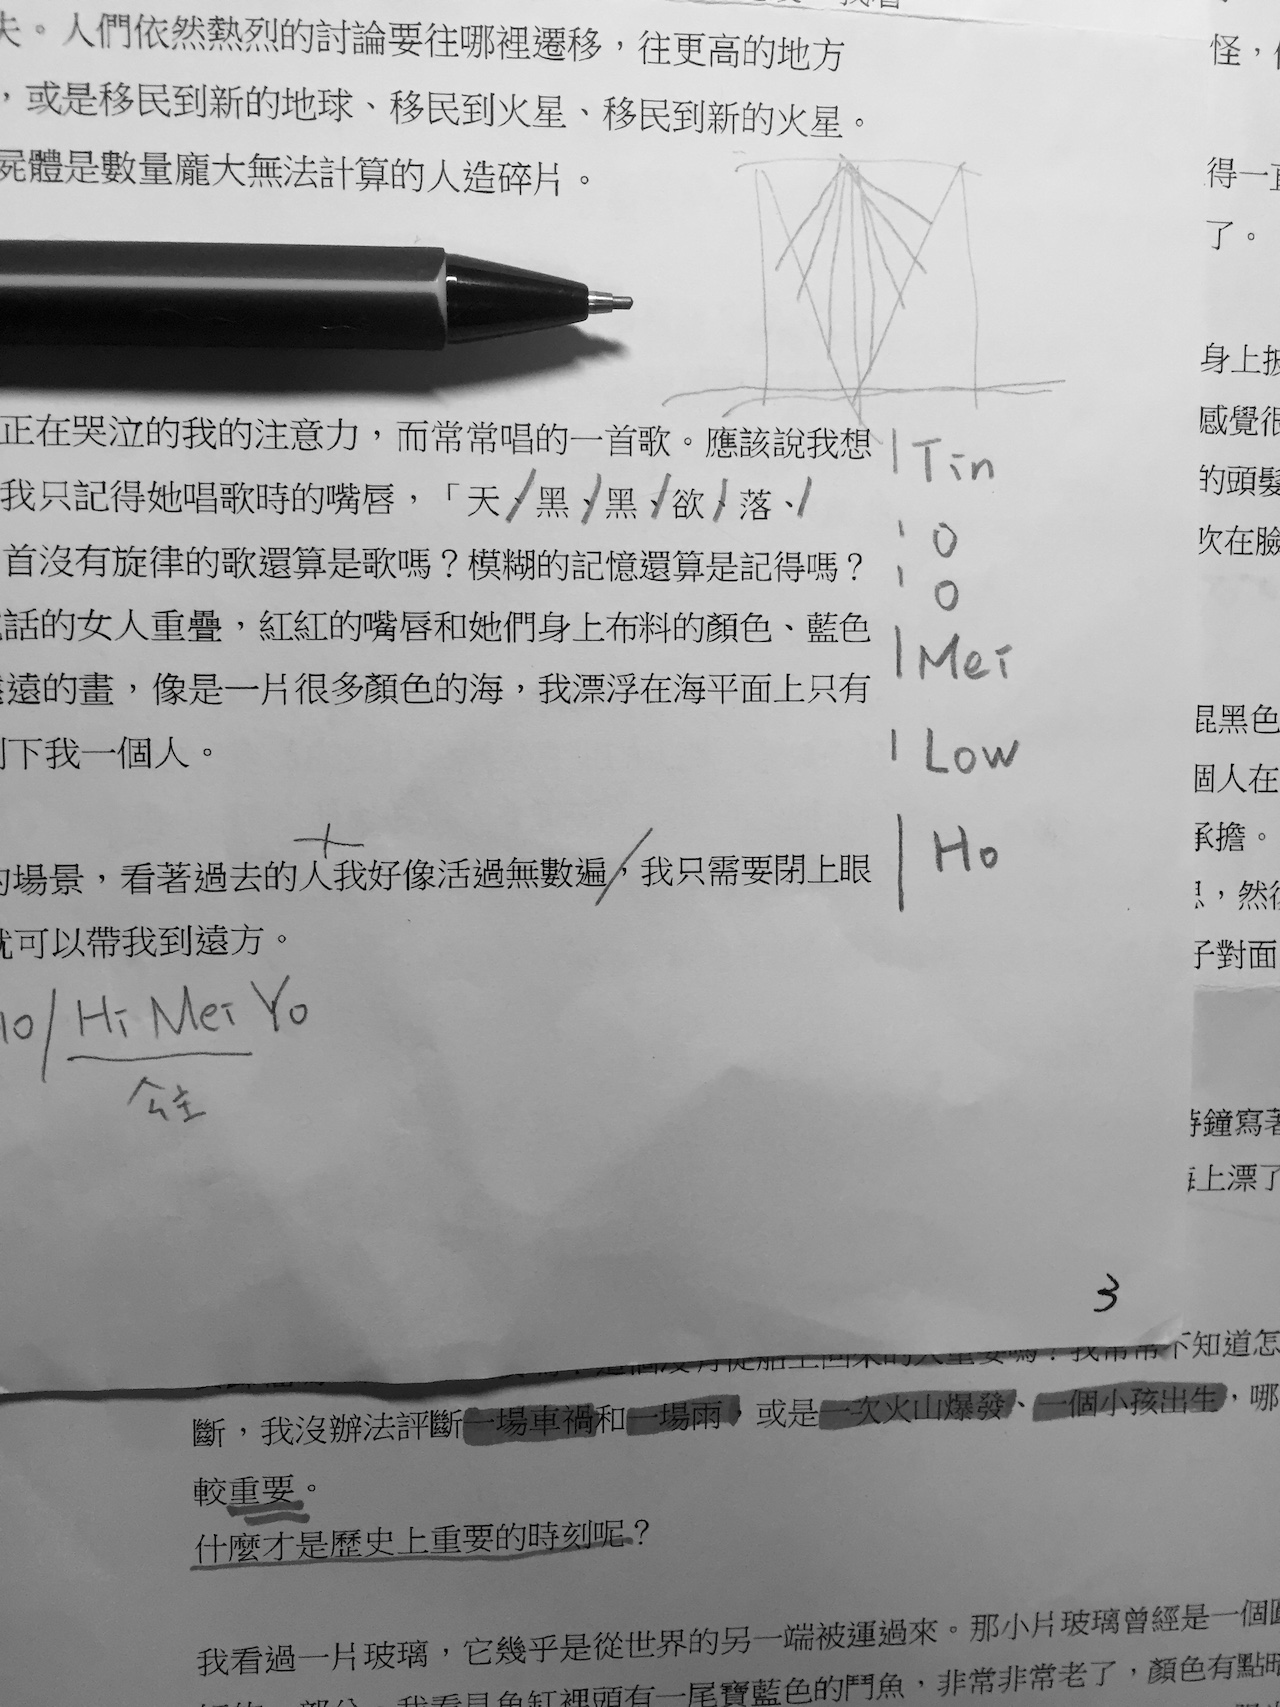 失。人們依然熱烈的討論要往哪裡遷移，往更高的地方
，或是移民到新的地球、移民到火星、移民到新的火星。
屍體是數量龐大無法計算的人造碎片。
正在哭泣的我的注意力，而常常唱的一首歌。應該說我想
我只記得她唱歌時的嘴唇，「天、黑、黑、欲、落、
首沒有旋律的歌還算是歌嗎？模糊的記憶還算是記得嗎？
話的女人重疊，紅紅的嘴唇和她們身上布料的顏色、藍色
遠的畫，像是一片很多顏色的海，我漂浮在海平面上只有
剩下我一個人。
的場景，看著過去的人我好像活過無數遍，我只需要閉上眼
就可以帶我到遠方。
Tin
O
O
Mei
Low
Ho
/Hi Mei Yo
公主
3
怪，
得一直
了。
身上披
感覺很
的頭髮
次在臉
混黑色
個人在
承擔。
，然後
子對面
時鐘寫著
海上漂了
不知道怎
斷，我沒辦法評斷一場車禍和一場雨，或是一次火山爆發、一個小孩出生，哪
較重要。
什麼才是歷史上重要的時刻呢？
我看過一片玻璃，它幾乎是從世界的另一端被運過來。那小片玻璃曾經是一個
一部分。我看見魚缸裡頭有一尾寶藍色的鬥魚，非常非常老了，顏色有點暗